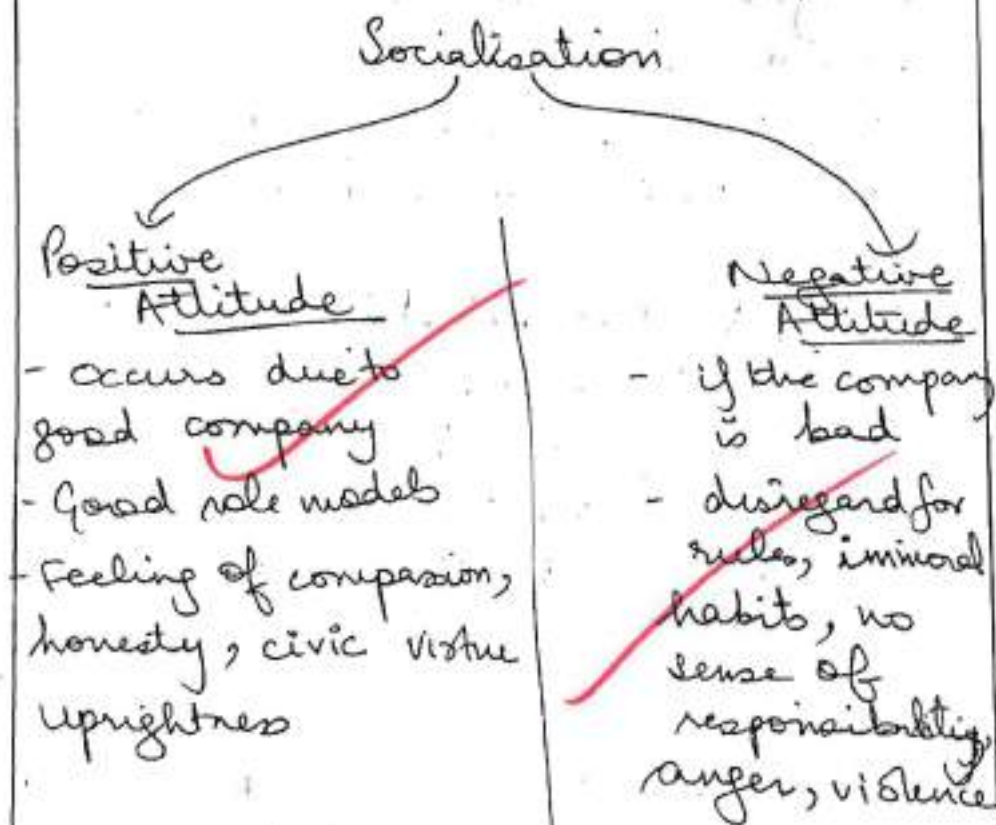 Socialisation
Positive
Attitude
- occurs due to
good company
- Good role models
- Feeling of compassion,
honesty, civic virtue
uprightness
Negative
Attitude
- if the company
is bad
- disregard for
rules, immoral
habits, no
sense of
responsibility,
anger, violence